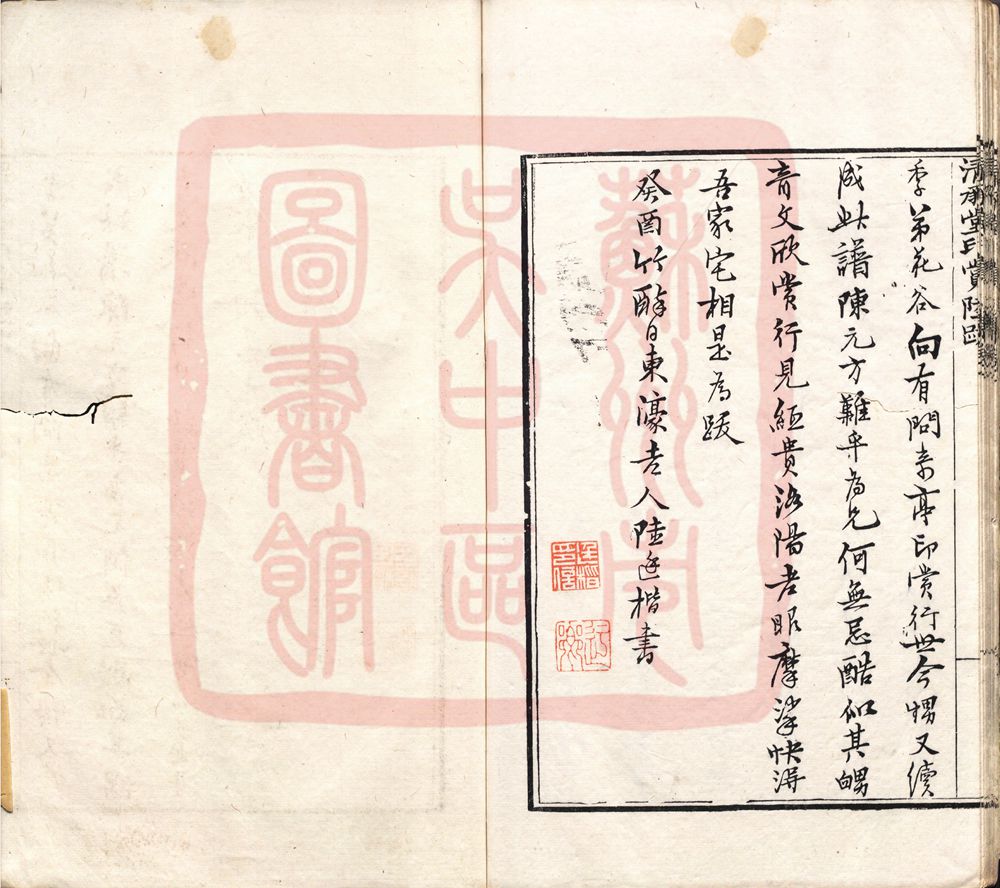 清承堂印賞 陸跋
季弟花谷向有問奇亭印賞行世今甥又續
成此譜陳元方難乎為兄何無忌酷似其舅
奇文欣賞行見紙貴洛陽老眼摩挲快得
吾家宅相是為跋
癸酉竹醉日東濠老人陸廷楷書
廷楷
印信
蘇州市
吴中區
圖書館